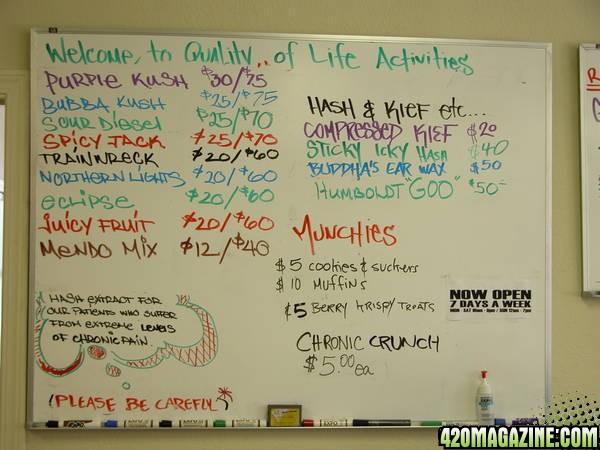 Welcome, to Quality.. of Life Activities
PURPLE KUSH $30/$75
BUBBA KUSH $25/$75
SOUR DIESEL $25/$70
SPICY JACK $25/$70
TRAINWRECK $20/$60
NORTHERN LIGHTS $20/$60
eclipse $20/$60
JUICY FRUIT $20/$60
MENDO MIX $12/$40
HASH & KIEF etc...
COMPRESSED KIEF $20
STICKY ICKY HASH $40
BUDDHA'S EAR WAX $50
HUMBOLDT "GOO" $50
MUNCHIES
$5 cookies & suckers
$10 MUFFINS
$5 BERRY KRISPY TREATS
CHRONIC CRUNCH
$5.00 ea
HASH EXTRACT FOR
OUR PATIENTS WHO SUFFER
FROM EXTREME LEVELS
OF CHRONIC PAIN.
PLEASE BE CAREFUL
NOW OPEN
7 DAYS A WEEK
EXPO
420MAGAZINE.COM